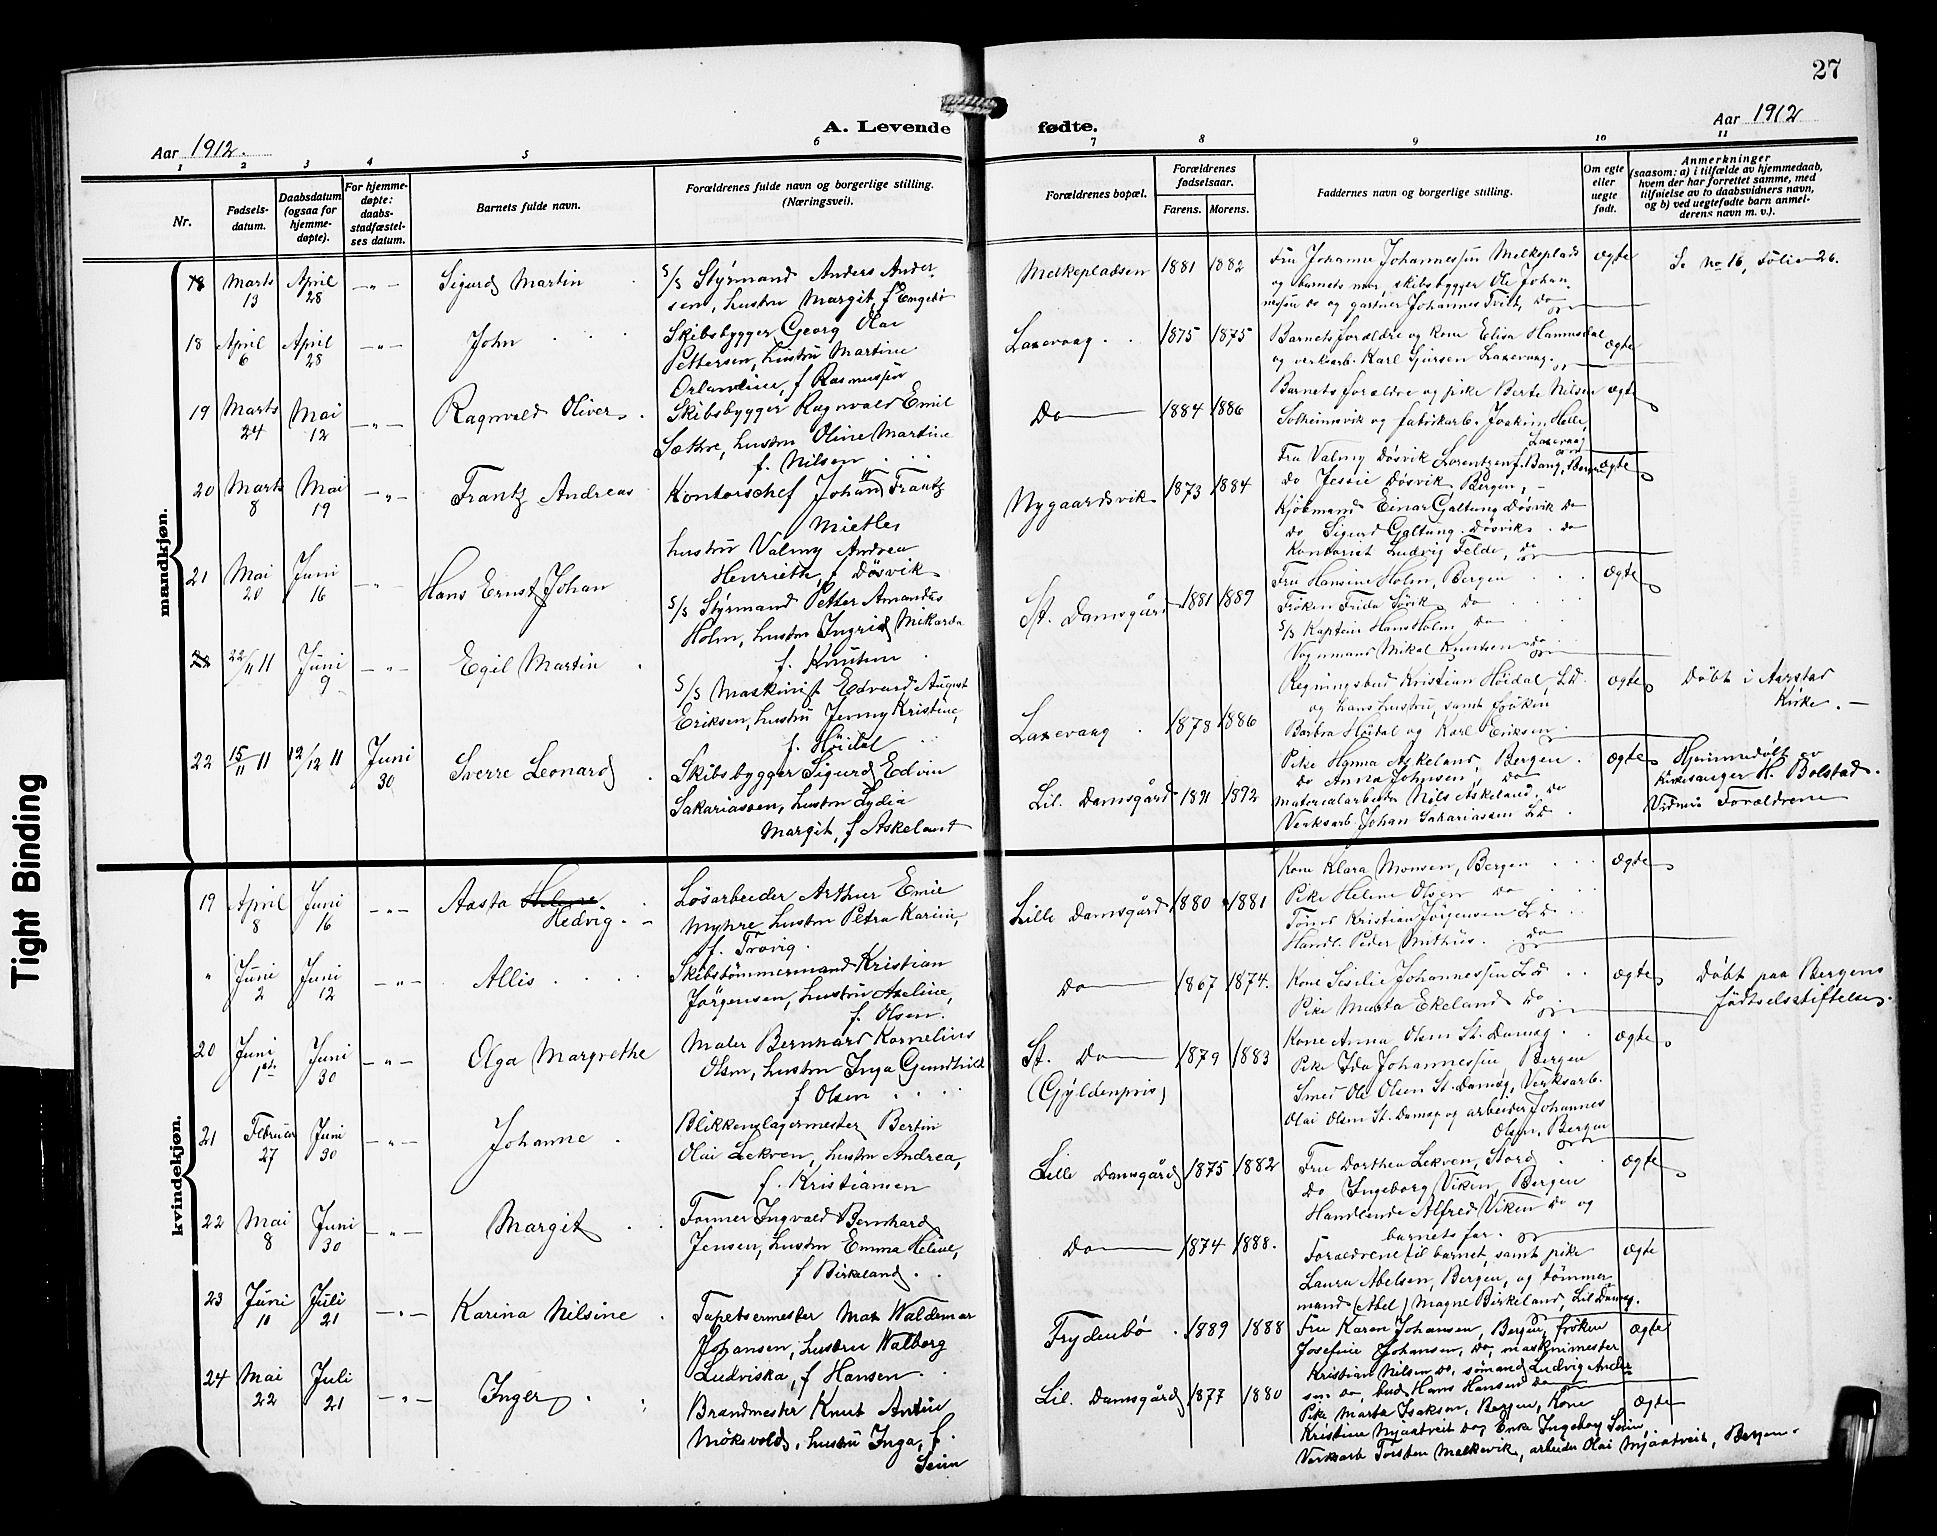 27
Aar 1912.
A. Levende
fødte.
Aar 1912
1 2 3 4 5 6
7 8 9 10 11
Nr.
Fødsels-
datum.
Daabsdatum
(ogsaa for
hjemme-
døpte).
For hjemme-
døpte:
daabs-
stadfæstel-
ses datum.
Barnets fulde navn.
Forældrenes fulde navn og borgerlige stilling.
(Næringsvei).
Forældrenes bopæl.
Forældrenes
fødselsaar.
Farens. Morens.
Faddernes navn og borgerlige stilling.
Om egte
eller
uegte
født.
Anmerkninger
(saasom: a) i tilfælde av hjemmedaab,
hvem der har forrettet samme, med
tilføielse av to daabsvidners navn,
og b) ved uegtefødte barn anmel-
derens navn m. v.).
mandkjøn.
18 Marts 13 April 28 -"- Sigurd Martin
S/S Styrmand Anders Ander-
sen, hustru Margit, f Engebø
Melkepladsen 1881 1882
Fru Johanne Johannessen Melkeplads
og barnets mor, skibsbygger Ole Johan-
nessen do og gartner Johannes Tvilt, do
ægte
Se no 16, Folie 26.
18 April 6 April 28 -"- John
Skibsbygger Georg Olai
Pettersen, hustru Martine
Orlandine, f Rasmussen
Laxevaag 1875 1875
Barnets forældre og kone Elisa Hammersdal
og verksarb. Karl Sjursen Laxevaag.
ægte
19 Marts 24 Mai 12 -"- Ragnvald Oliver
Skibsbygger Ragnvald Emil
Sætre, hustru Oline Martine
f. Nilsen
Do 1884 1886
Barnets forældre og pike Berte Nilsen
Solheimsvik og fabrikarb. Joakim Helle,
Laxevaag
ægte
20 Marts 8 Mai 19 -"- Frantz Andreas
Kontorschef Johan Frantz
Mietle
hustru Valmy Andrea
Henriette, f Døsvik
Nygaardsvik 1873 1884
Fru Valmy Døsvik Lorentzen f. Bang, Bergen
do Jessie Døsvik Bergen,
Kjøbmand Einar Galtung Døsvik do
do Sigurd Galtung Døsvik do
Kontorist Ludvig Felde, do
ægte
21 Mai 20 Juni 16 -"- Hans Ernst Johan
S/S Styrmand Petter Amandus
Holm, hustru Ingrid Mikarda
f. Knutsen
St. Damsgård 1881 1889
Fru Hansine Holm, Bergen
Frøken Frida do
S/S Kaptein Hans Holm do
Vognmand Mikal Knutsen do
ægte
22 22/11 11 Juni 9 -"- Egil Martin
S/S Maskinist Edvard August
Eriksen, hustru Jenny Kristine,
f. Høidal
Laxevaag 1878 1886
Regningsbud Kristian Høidal, LD.
og hans hustru, samt frøken
Barbra Høidal og Karl Eriksen
ægte
Døbt i Aarstad
Kirke.
22 15/11 11 12/12 11 Juni 30 Sverre Leonard
Skibsbygger Sigurd Edvin
Sakariassen, hustru Lydia
Margit, f Askeland
Lil. Damsgård 1891 1892
Pike Hanna Askeland, Bergen
do Anna Johnsen, do
materialarbeider Nils Askeland do
Verksarb. Johan Sakariassen LD.
ægte
Hjemmedøbt av
Kirkesanger H. Bolstad.
Vidner: Forældrene
kvindekjøn.
19 April 8 Juni 16 -"- Aasta Helene
Hedvig.
Løsarbeider Arthur Emil
Myhre hustru Petra Karine,
f. Trovig.
Lille Damsgård 1880 1881
Kone Klara Monsen, Bergen
Pike Helene Olsen do
Tømr Kristian Jørgensen LD.
Handl. Peder Midthus. do
ægte
" Juni 2 Juni 12 -"- Allis
Skibstømmermand Kristian
Jørgensen, hustru Axeline,
f. Olsen.
Do 1867 1874.
Kone Sesilie Johannessen LD
Pike Marta Ekeland do
ægte
Døbt paa Bergens
fødselsstiftelse.
20 Juni 1ste Juni 30 -"- Olga Margrethe
Maler Bernhard Kornelius
Olsen, hustru Inga Gundhild
f Olsen
St. Do
(Gyldenpris)
1879 1883
Kone Anna Olsen St. Damsg.
Pike Ida Johannessen, Bergen
Smed Ole Olsen St. Damsg, Verksarb.
Olai Olsen St. Damsg og arbeider Johannes
Olsen, Bergen
ægte
21 Februar 27 Juni 30 -"- Johanne
Blikkenslagermester Bertin
Olai Lekven, hustru Andrea,
f. Kristiansen
Lille Damsgård 1875 1882
Fru Dorthea Lekven, Stord
do Ingeborg Viken, Bergen
Handlende Alfred Viken do og
barnets far.
ægte
22 Mai 8 Juni 30 -"- Margit
Former Ingvald Bernhard
Jensen, hustru Emma Helene,
f Birkeland
Do 1874 1888.
Forældrene til barnet, samt pike
Laura Abelsen, Bergen, og tømmer-
mand (Abel) Magne Birkeland, Lil Damsg.
ægte
23 Juni 10 Juli 21 -"- Karina Nilsine
Tapetsermester Max Waldemar
Johansen, hustru Walborg
Ludviska, f Hansen
Frydenbø 1889 1888
Fru Karen Johansen, Bergen, frøken
Josefine Johansen, do, maskinmester
Kristian Nilsen do, sømand Ludvig Ander-
sen do, bud Hans Hansen do
ægte
24 Mai 22 Juli 21 -"- Inger
Brandmester Knut Antin
Møksvold, hustru Inga, f.
Seim
Lil. Damsgård 1877 1880
Pike Marta Isaksen, Bergen, Kone
Kristine Mjaatveit do, Enke Ingeborg Seim,
Verksarb Torsten Malkevik, arbeider Olai Mjaatveit, Bergen.
ægte
Tight Binding